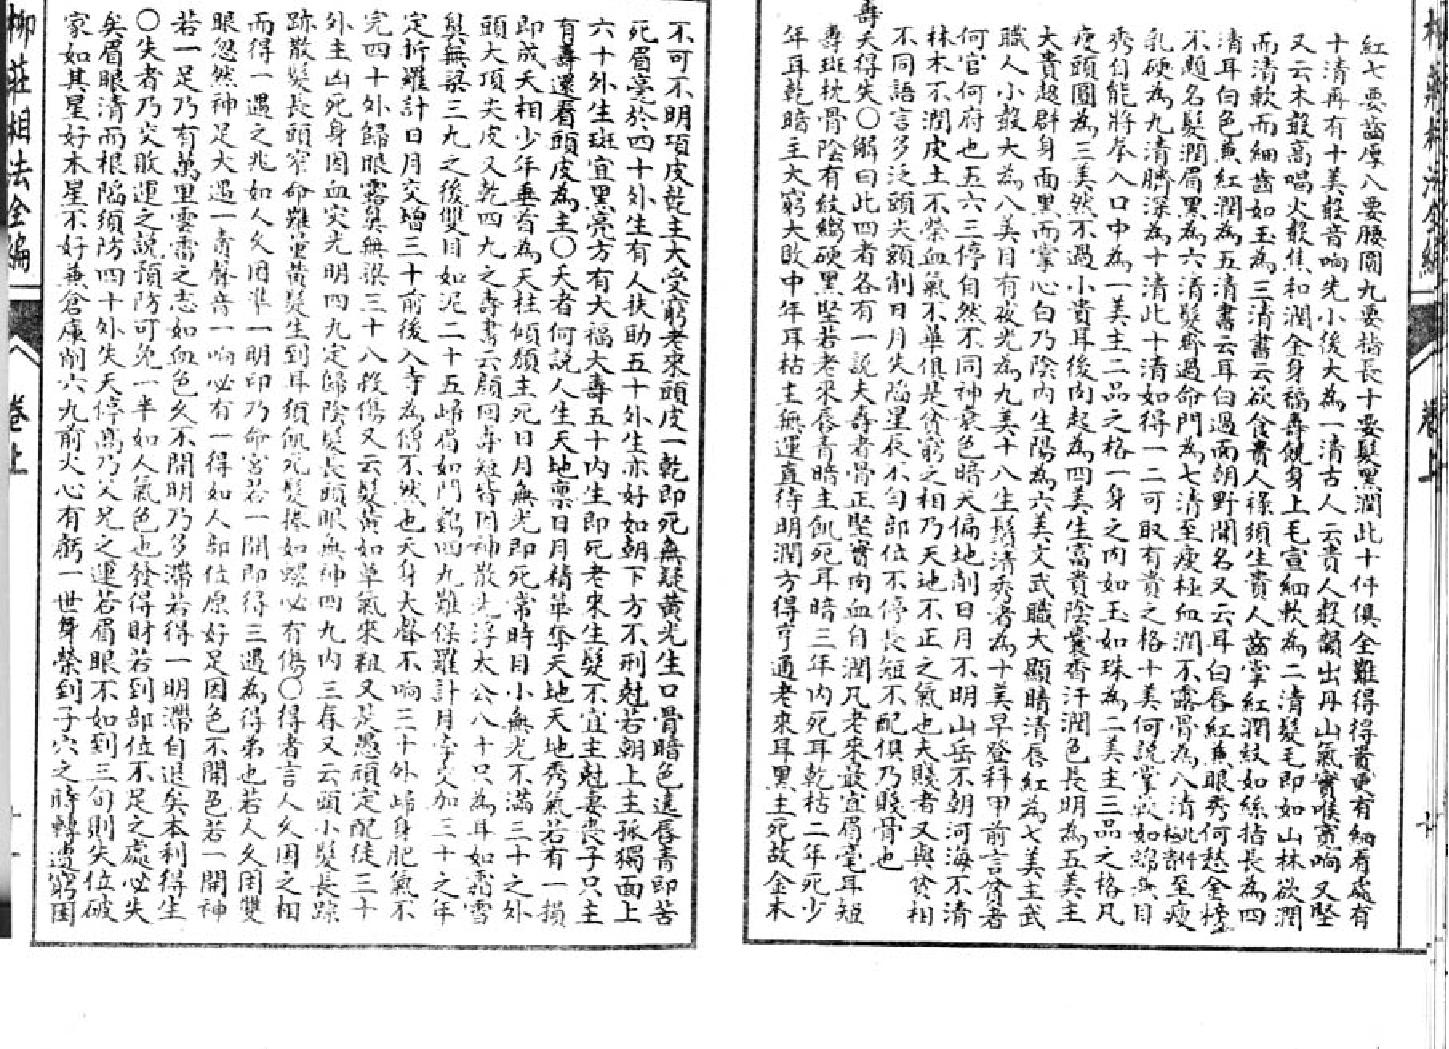 紅七要齒厚八要腰圓九要指長十要髮黑潤此十件俱全難得得貴更有細有處有
十清再有十美殺音响先小後大為一清古人云貴人殺韻出丹山氣實喉寬响又堅
又云木殺高唱火殺焦和潤金身福壽饒身上毛宣細軟為二清髮毛即如山林欲潤
而清軟而細齒如玉為三清書云欲食貴人祿須生貴人齒掌紅潤紋如絲指長為四
清耳白色兼紅潤為五清書云耳白過面朝野聞名又云耳白唇紅兼眼秀何愁金榜
不題名髮潤眉黑為六清髮齊過命門為七清至瘦極血潤不露骨為八清至瘦
乳硬為九清臍深為十清此十清如得一二可取有貴之格十美何說掌軟如綿
秀自能將拳入口中為一美主二品之格一身之肉如玉如珠為二美主三品之格凡
瘦頭圓為三美然不過小貴耳後肉起為四美生富貴陰囊香汗潤色長明為五美主
大貴越群身面黑而掌心白乃陰內生陽為六美文武職大顯睛清唇紅為七美主武
職人小殺大為八美目有夜光為九美十八生鬍清秀者為十美早登科甲前言貧者
何官何府也五六三停自然不同神衰色暗天偏地削日月不明山岳不朝河海不清
林木不潤皮土不榮血氣不華俱是貧窮之相乃天地不正之氣也夫賤者又與貧相
不同語言多泛頭尖額削日月失陷星辰不勻部位不停長短不配俱乃賤骨也
壽夭得失〇解曰此四者各有一說夫壽者骨正堅實肉血自潤凡老來最宜眉毫耳短
壽斑枕骨陰有紋縐硬黑堅若老來唇青暗主飢死耳暗三年內死耳乾枯二年死少
年耳乾暗主大窮大敗中年耳枯主無運直待明潤方得亨通老來耳黑主死故金木
不可不明項皮乾主大受窮老來頭皮一乾即死無疑黃光生口骨暗色連唇青即苦
死眉毫於四十外生有人扶助五十外生亦好如朝下方不刑尅若朝上主孤獨面上
六十外生斑宜黑亮方有大福大壽五十內生即死老來生髮不宜主尅妻喪子只主
有壽還看頭皮為主〇夭者何說人生天地稟日月精華奪天地天地秀氣若有一損
即成夭相少年垂首為天柱傾頹主死日月無光即死常時目小無光不滿三十之外
頭大頂尖皮又乾四九之壽書云顏回壽短皆因神散光浮太公八十只為耳如霜雪
鼻無梁三九之後雙目如泥二十五歸眉如鬥鷄四九難保羅計月孛交加三十之年
定折羅計日月交增三十前後入寺為僧不然也夭身大聲不响三十外歸身肥氣不
完四十外歸眼露鼻無梁三十八殺傷又云髮黃如草氣來粗又是愚頑定配徒三十
外主凶死身因血突光明四九定歸陰髮長頭眼無神四九內三春又云頭小髮長踪
跡散髮長頭窄命難量黃髮生到耳須飢死髮捲如螺必有傷〇得者言人久困之相
而得一遇之兆如人久困準一明印乃命宮若一開即得三遇為得弟也若人久困雙
眼忽然神足大遇一壽聲音一响必有一得如人部位原好足因色不開色若一開神
若一足乃有萬里雲霄之志如血色久不開明乃多滯若得一明滯自退矣本利得生
〇失者乃交敗運之說預防可免一半如人氣色也發得財若到部位不足之處必失
矣眉眼清而根陷須防四十外失天停高乃父兄之運若眉眼不如到三旬則失位破
家如其星好木星不好兼倉庫削六九前火心有虧一世身榮到子穴之時轉遭窮困
柳莊相法全編
卷上
卷上